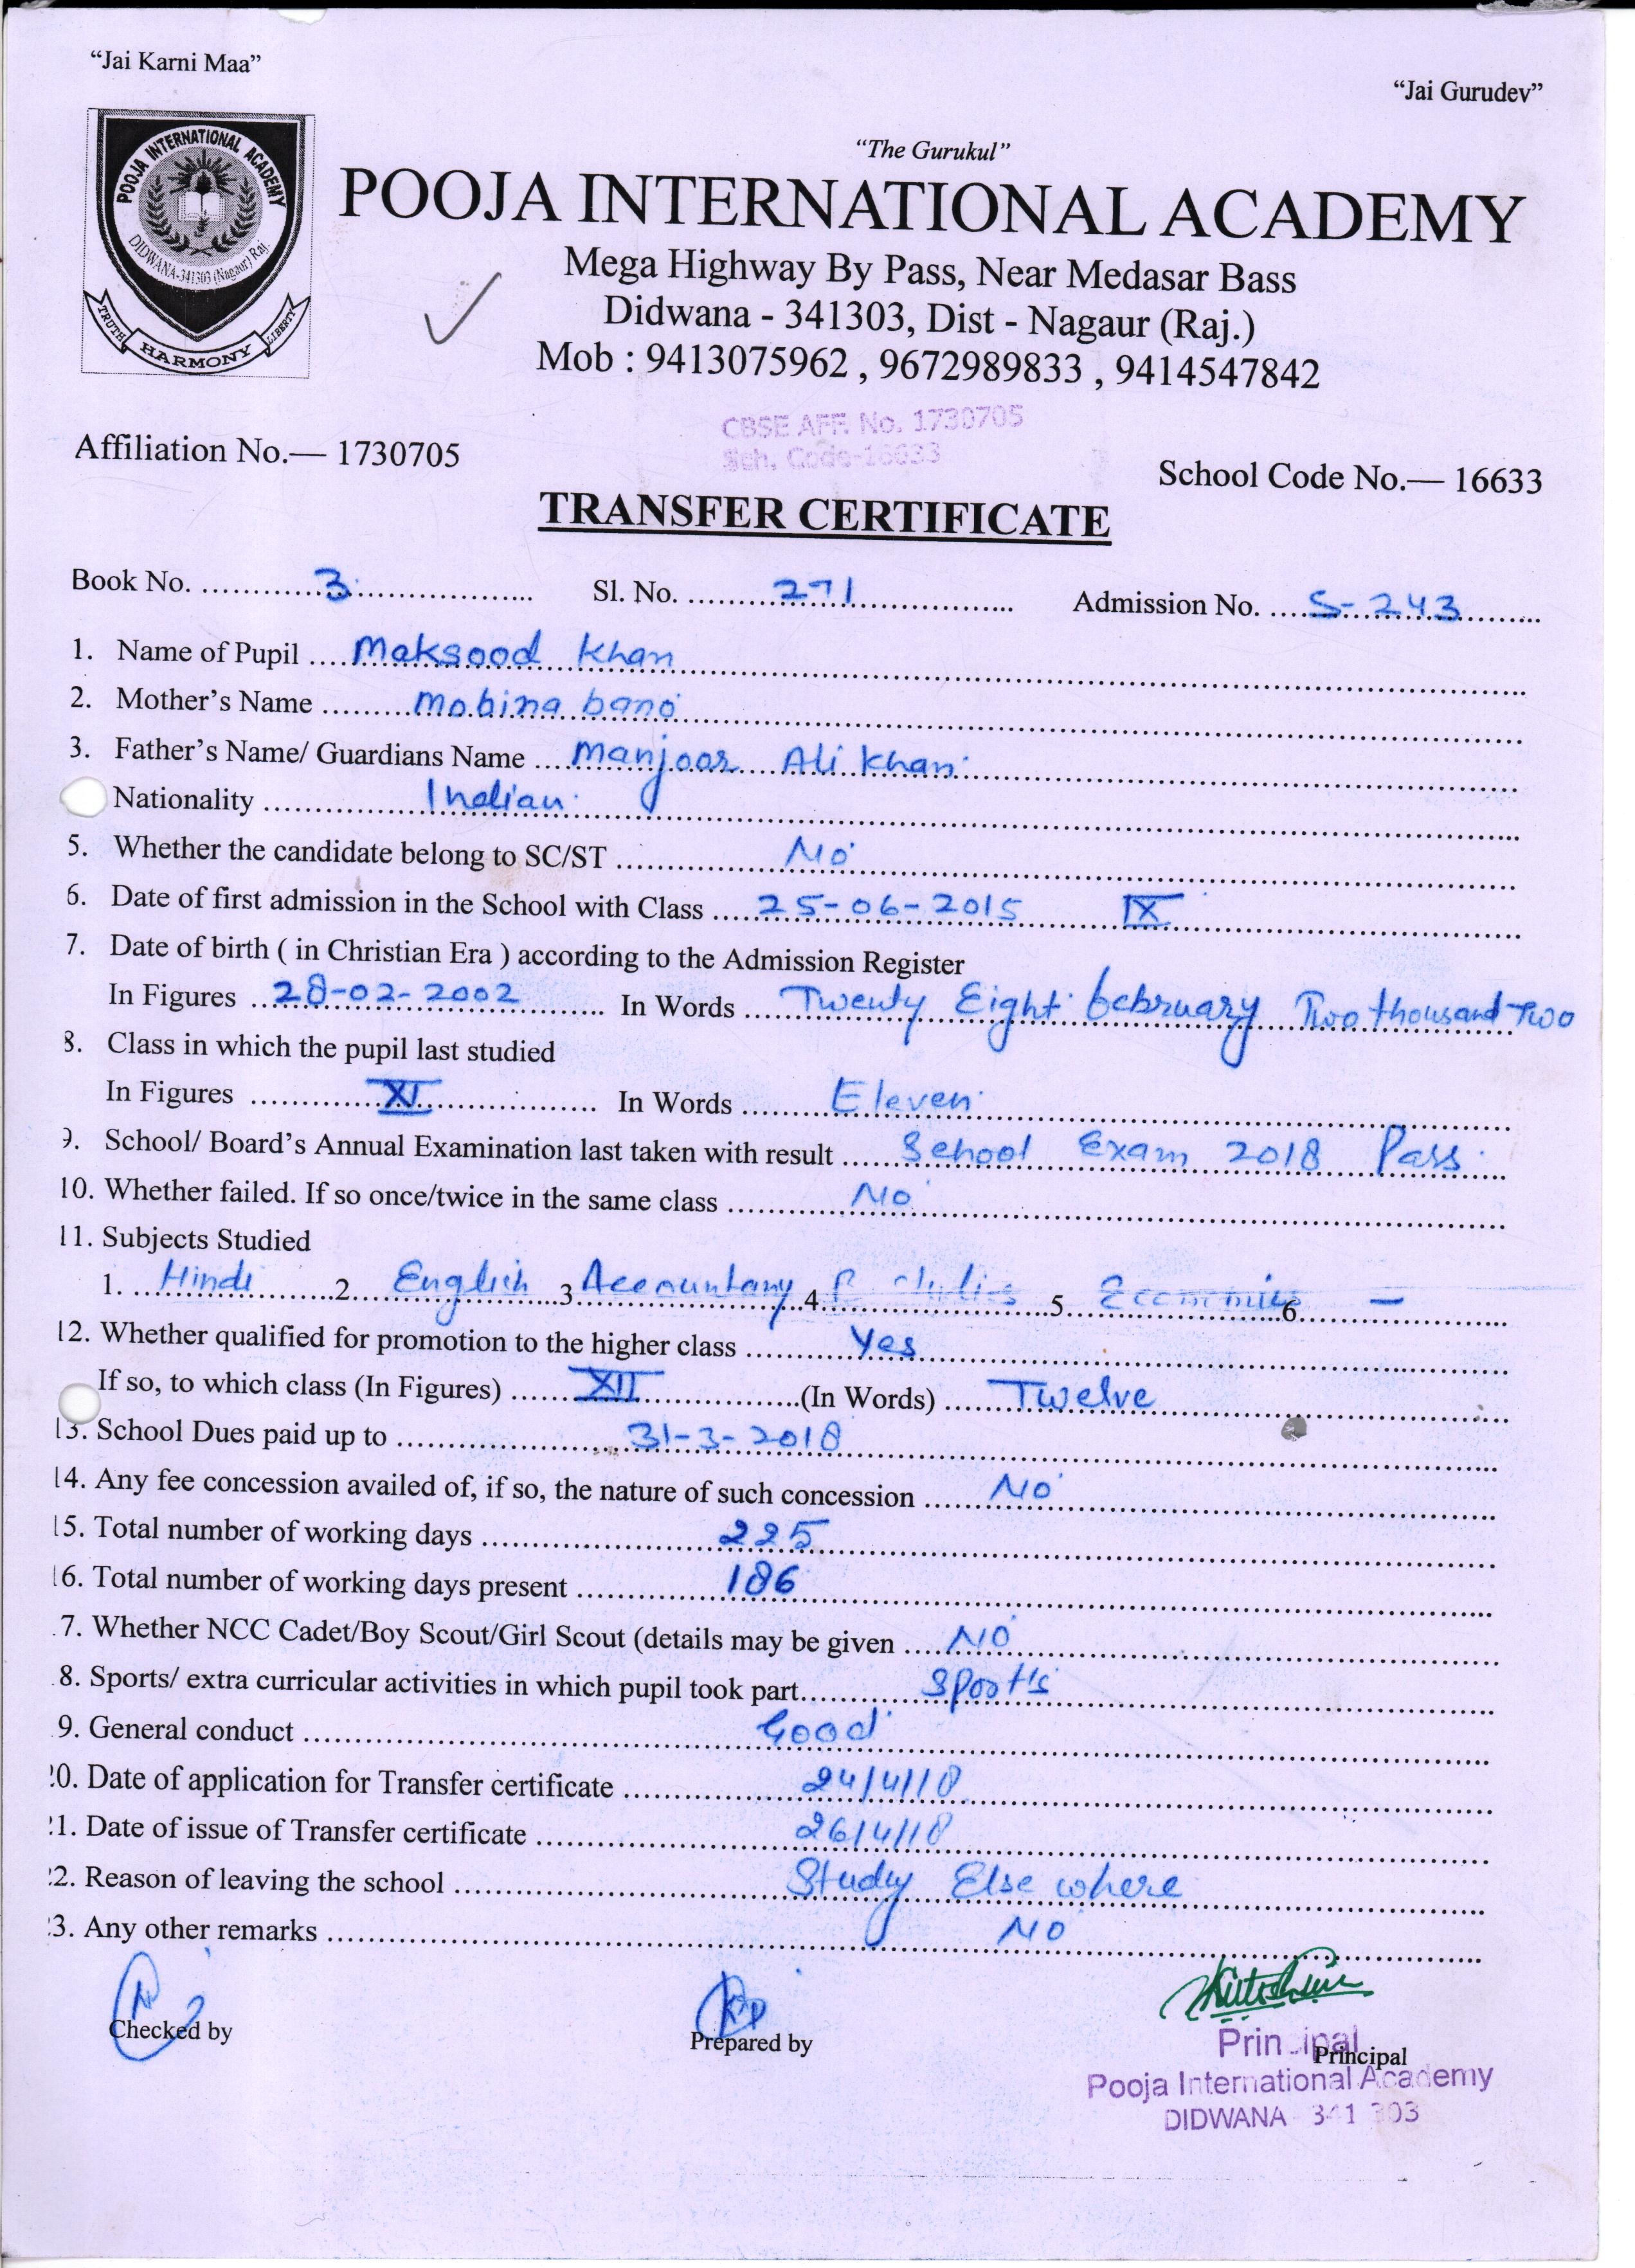 "Jai Karni Maa"
"Jai Gurudev"
POOJA INTERNATIONAL ACADEMY
DIDWANA-341303 (Nagaur) Raj.
TRUTH HARMONY LIBERTY
"The Gurukul"
POOJA INTERNATIONAL ACADEMY
Mega Highway By Pass, Near Medasar Bass
Didwana - 341303, Dist - Nagaur (Raj.)
Mob : 9413075962 , 9672989833 , 9414547842
CBSE AFF. No. 1730705
Sch. Code-16633
Affiliation No.— 1730705
School Code No.— 16633
TRANSFER CERTIFICATE
Book No. 3 Sl. No. 271 Admission No. S-243
1. Name of Pupil Maksood Khan
2. Mother's Name Mobina bano
3. Father's Name/ Guardians Name Manjoor Ali Khan
Nationality Indian
5. Whether the candidate belong to SC/ST No
6. Date of first admission in the School with Class 25-06-2015 IX
7. Date of birth ( in Christian Era ) according to the Admission Register
In Figures 28-02-2002 In Words Twenty Eight february Two thousand Two
8. Class in which the pupil last studied
In Figures XI In Words Eleven
9. School/ Board's Annual Examination last taken with result School Exam 2018 Pass
10. Whether failed. If so once/twice in the same class No
11. Subjects Studied
1. Hindi 2. English 3 Accountany 4 5 Economics 6 —
12. Whether qualified for promotion to the higher class Yes
If so, to which class (In Figures) XII (In Words) Twelve
13. School Dues paid up to 31-3-2018
14. Any fee concession availed of, if so, the nature of such concession No
15. Total number of working days 225
16. Total number of working days present 186
7. Whether NCC Cadet/Boy Scout/Girl Scout (details may be given NO
8. Sports/ extra curricular activities in which pupil took part Sports
9. General conduct Good
0. Date of application for Transfer certificate 24/4/18
1. Date of issue of Transfer certificate 26/4/18
2. Reason of leaving the school Study Else where
3. Any other remarks NO
Checked by Prepared by Principal
Principal
Pooja International Academy
DIDWANA 341 303